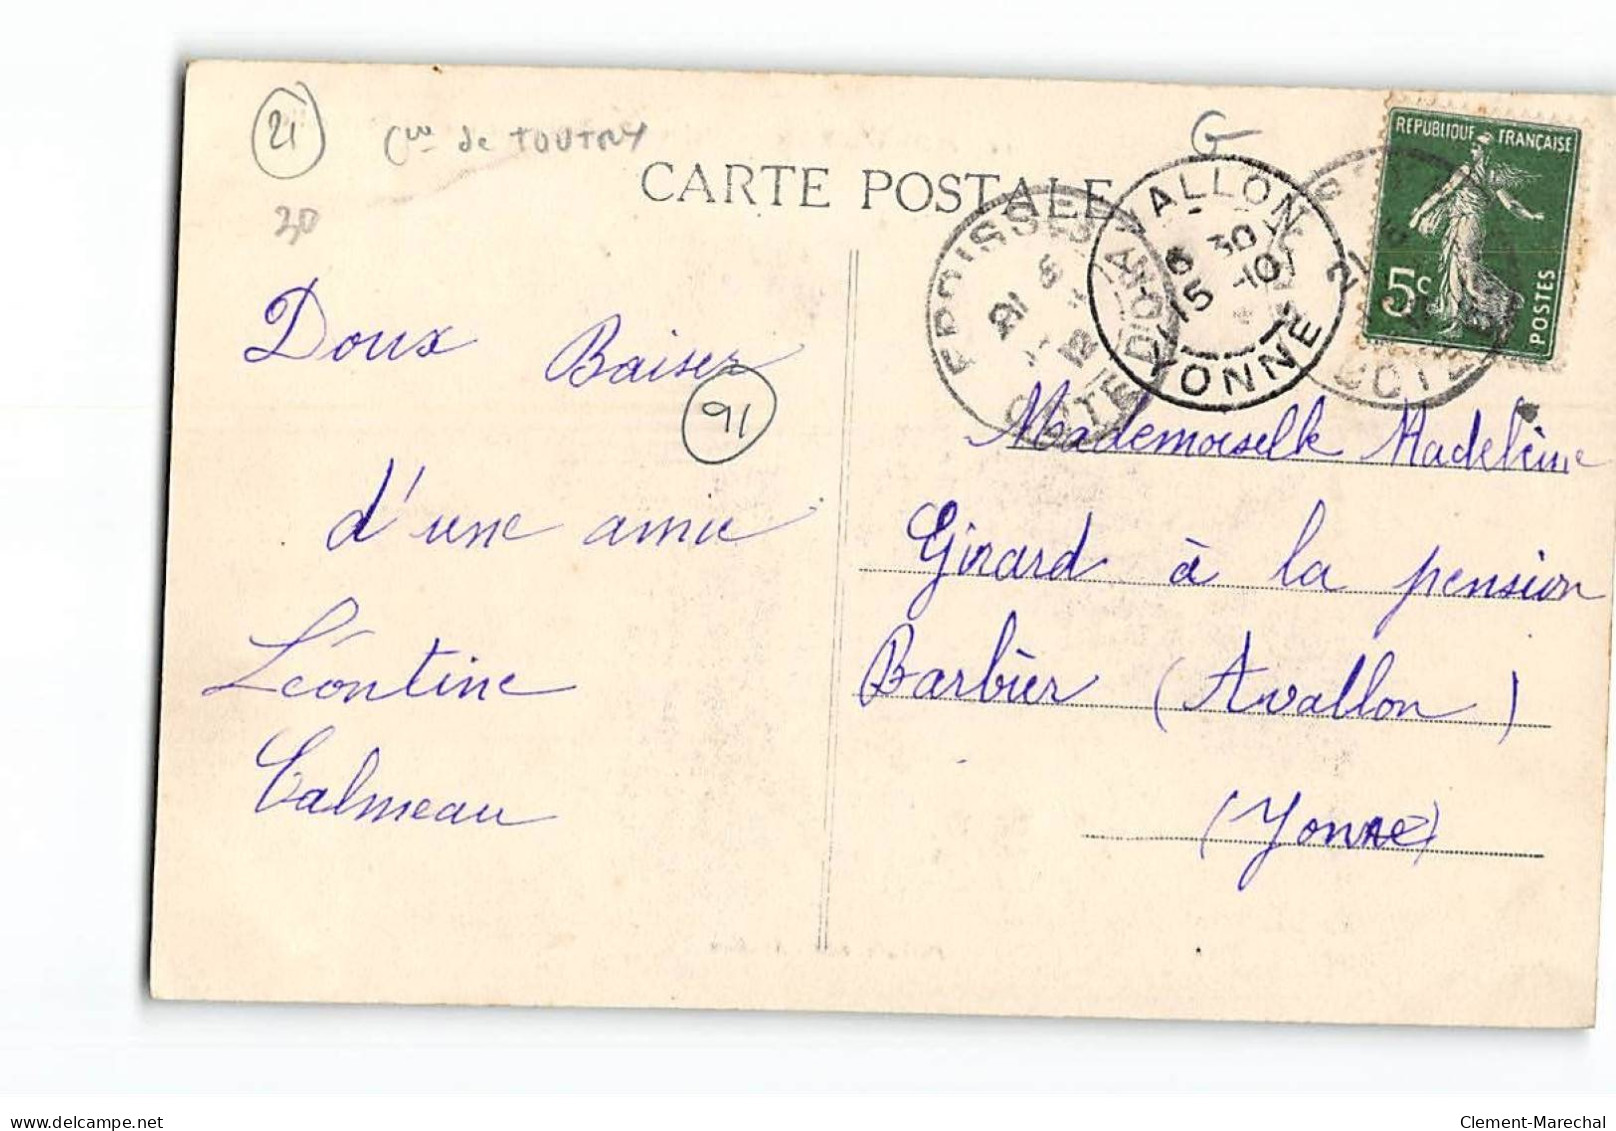 21
Cne de TOUTRY
30
G
CARTE POSTALE
REPUBLIQUE FRANÇAISE
5c
POSTES
EPOISSES
21
8
12
COTE D'OR
AVALLON
6 30
15-10
YONNE
COTE
Doux Baiser
91
d'une amie
Léontine
Calmeau
Mademoiselle Madeleine
Girard à la pension
Barbier (Avallon)
(Yonne)
delcampe.net
Clement-Marechal